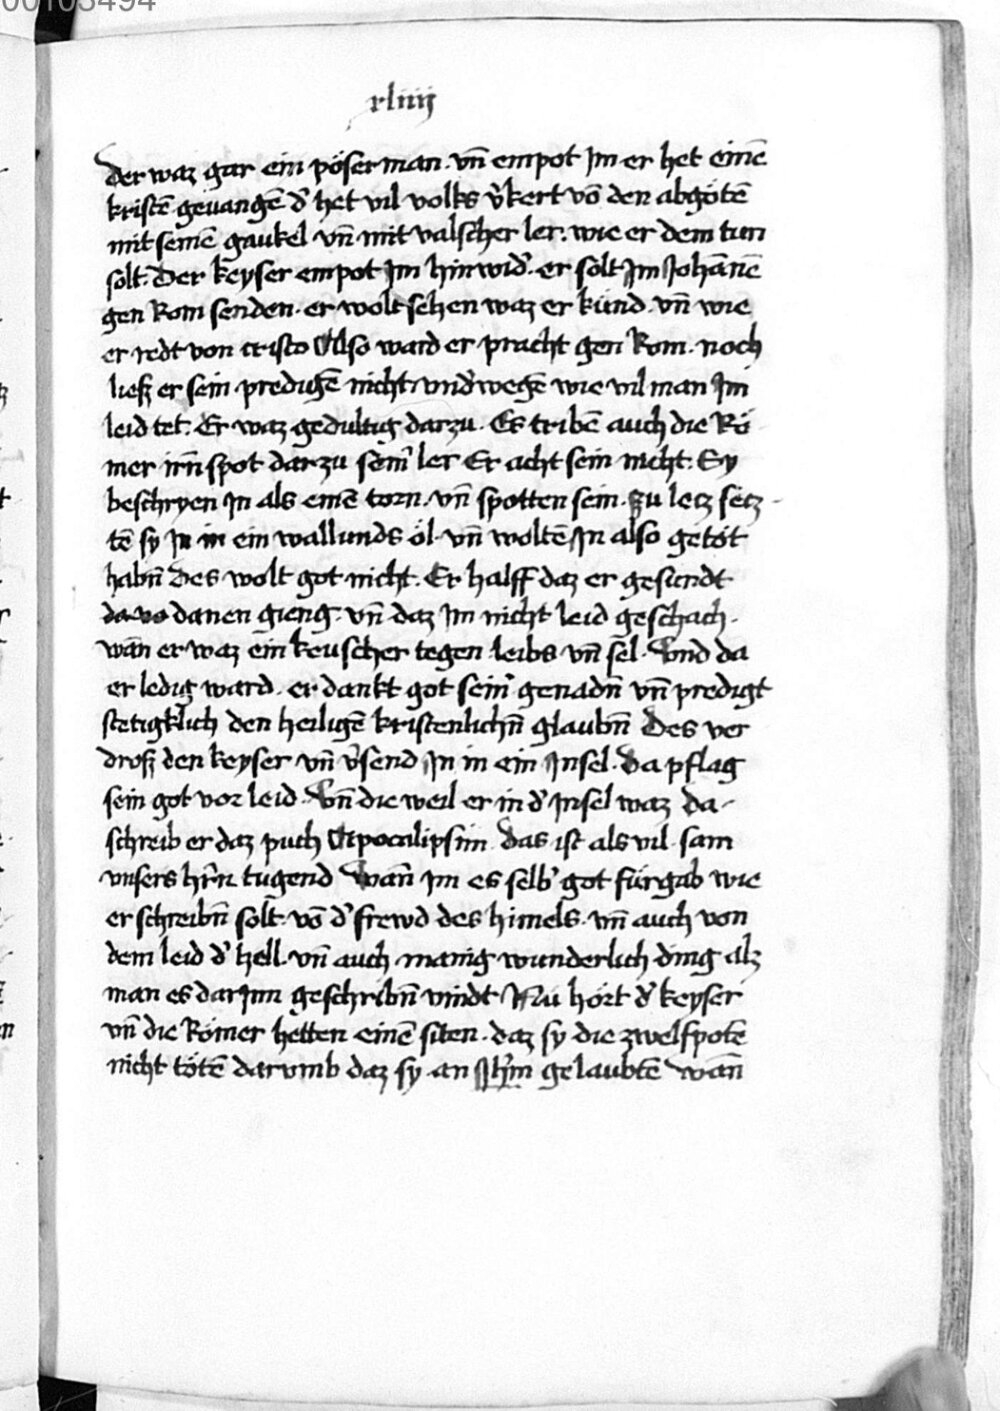 00103494
xliiij
Der waz gar ein pöser man · vn̄ empot Im er het einē
kristē geuangē d᷎ het vil volks v᷎kert vō den abgötē
mit seinē gaukel vn̄ mit valscher ler · wie er dem tun
solt · Der keyser empot Im hinwid᷎ · er solt Im Johānē
gen Rom senden · er wolt sehen waz er künd · vn̄ wie
er redt von cristo Also ward er pracht gen Rom · noch
liesz er sein predigē nicht vnd᷎wegē wie vil man Im
leid tet · Er waz gedultig darzu · Es tribē auch die Rö
mer irn̄ spot darzu sein᷎ ler Er acht sein nicht · Sy
beschryen In als einē torn · vn̄ spotten sein · zu letz setz-
tē sy In in ein wallunds öl · vn̄ woltē In also getöt
habn̄ Des wolt got nicht · Er halff daz er gesundt
da vō danen gieng · vn̄ daz Im nicht leid geschach ·
wān er waz ein keuscher tegen leibs vn̄ sel · Vnd da
er ledig ward · er dankt got sein᷎ genadn̄ vn̄ predigt
stetigklich den heiligē kristenlichn̄ glaubn̄ Des ver
drosz den keyser vn̄ v᷎send In in ein Insel · Da pflag
sein got vor leid · Vn̄ die weil er in d᷎ Insel waz da-
schreib er daz puch Apocalipsim · das ist als vil sam
vnsers hr̄n tugend Wān im es selb᷎ got fürgab wie
er schreibn̄ solt · vō d᷎ frewd des himels · vn̄ auch von
dem leid d᷎ hell · vn̄ auch manig wunderlich ding alz
man es darInn geschribn̄ vindt Nu hört d᷎ keyser
vn̄ die Römer hetten einē siten · daz sy die zwelfpotē
nicht tötē darvmb daz sy an Jhm̄ gelaubtē wān